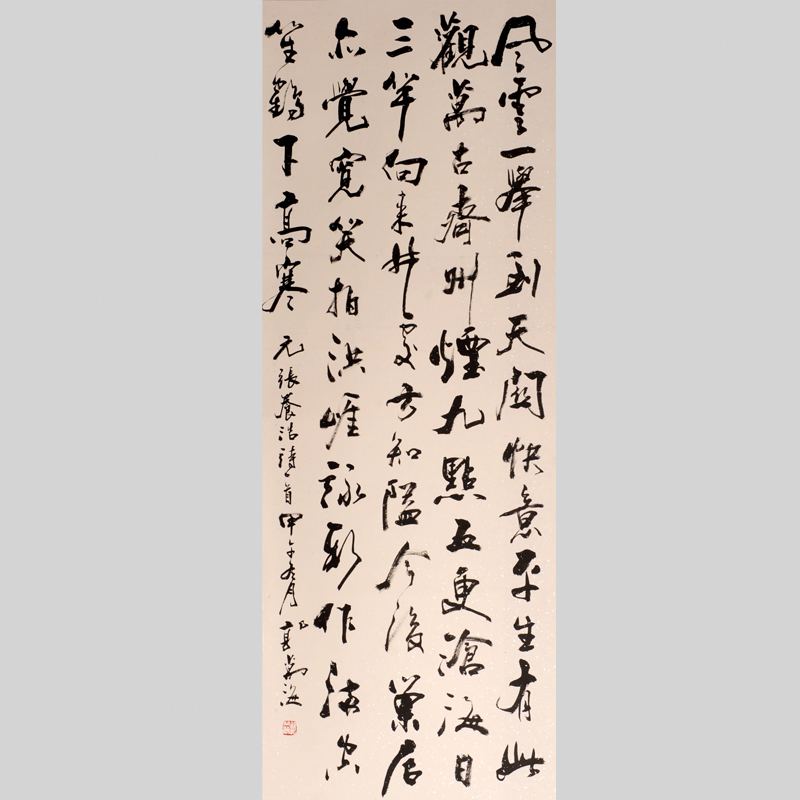 風雲一舉到天關快意平生有此
觀萬古齊州煙九點五更滄海日
三竿向来井處方知隘今後巢居
亦覺寬笑拍洪崖詠新作滿空
笙鶴下高寒
元張養浩詩一首甲午冬月